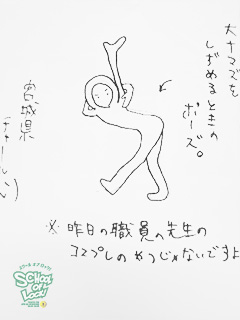 大ナマズを
しずめるときの
ポーズ。
宮城県
※ 昨日の職員の先生の
コスプレのやつじゃないですよ
SCHOOL
OF
LOCK!